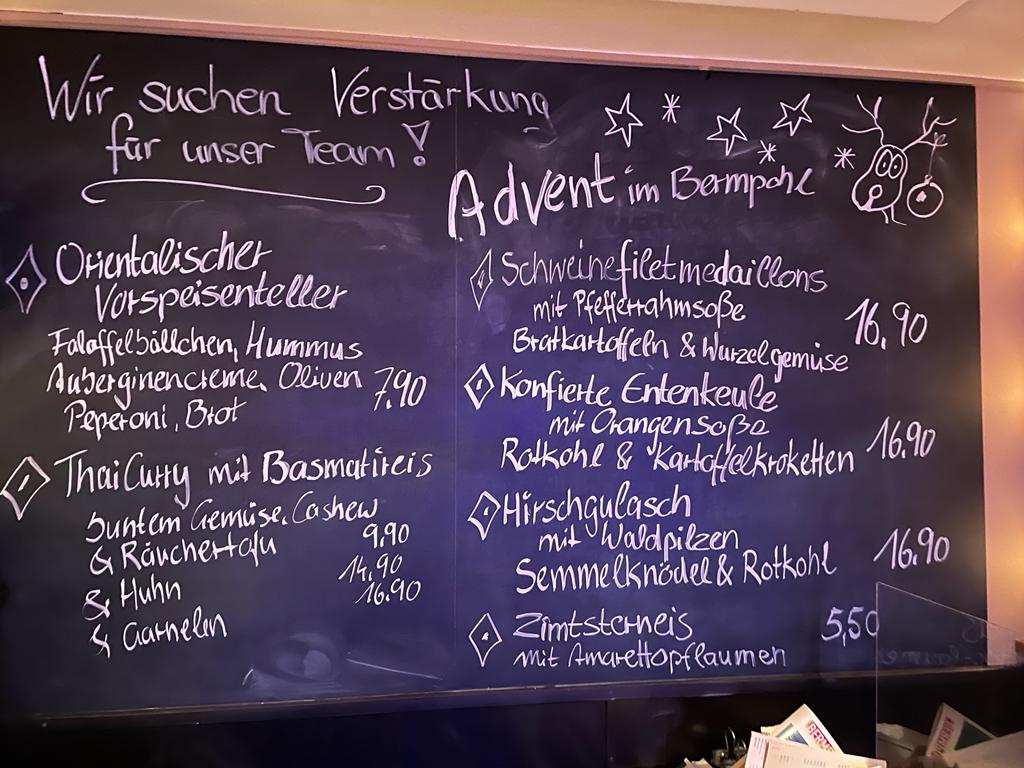 Wir suchen Verstärkung
für unser Team!
Orientalischer
Vorspeisenteller
Falaffelbällchen, Hummus
Auberginencreme, Oliven 7.90
Peperoni, Brot
ThaiCurry mit Basmatireis
buntem Gemüse, Cashew
& Räuchertofu 9,90
& Huhn 14,90
& Garnelen 16.90
Advent im Bermpohl
Schweinefiletmedaillons
mit Pfefferrahmsoße 16,90
Bratkartoffeln & Wurzelgemüse
Konfierte Entenkeule
mit Orangensoße
Rotkohl & Kartoffelkroketten 16.90
Hirschgulasch
mit Waldpilzen
Semmelknödel & Rotkohl 16.90
Zimtsterneis 5,50
mit Amarettopflaumen